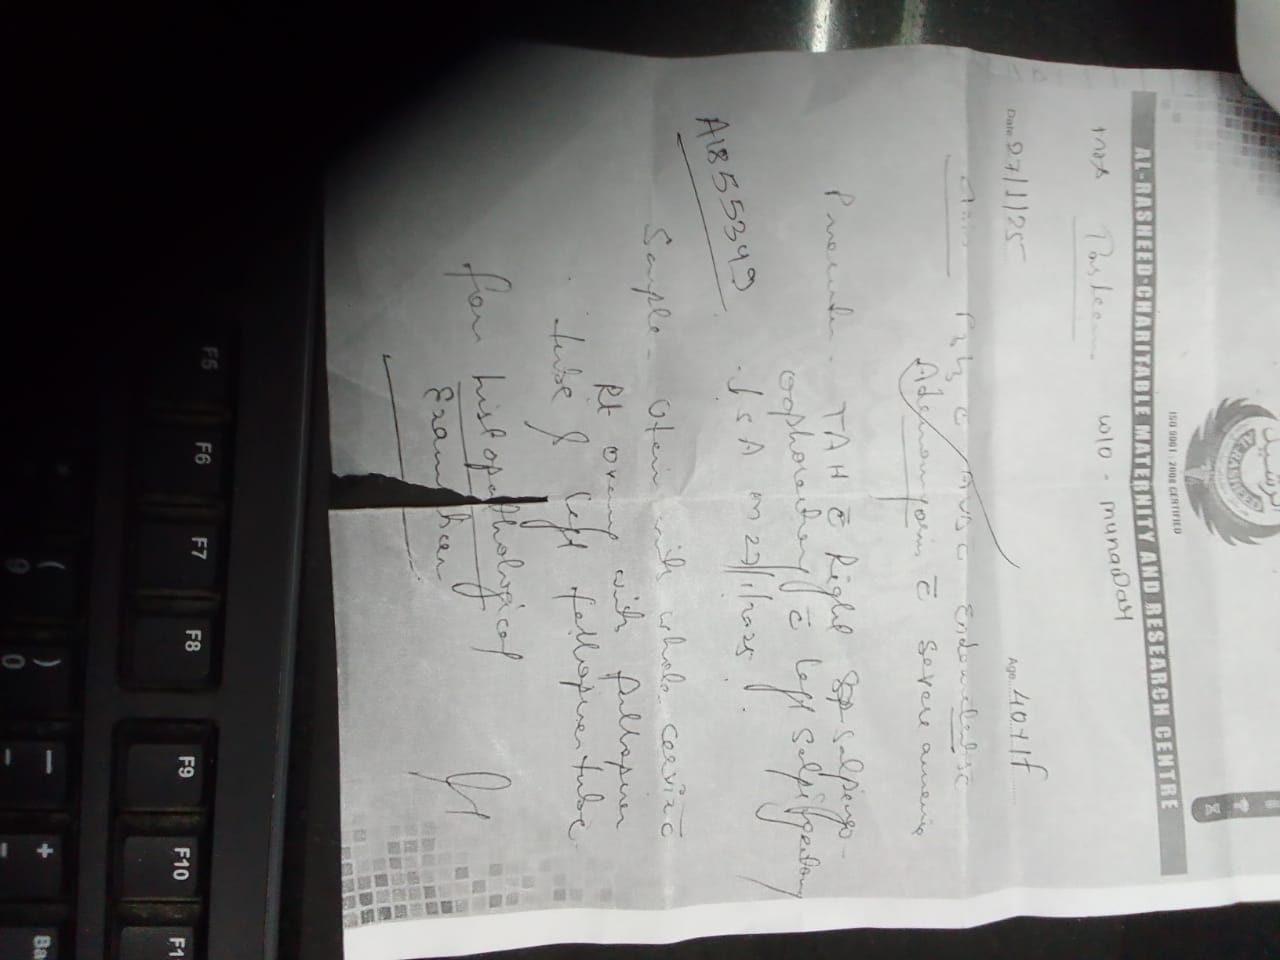 ISO 9001 : 2008 CERTIFIED
AL-RASHEED CHARITABLE MATERNITY AND RESEARCH CENTRE
W/O - munawar
Date 27/1/25 Age 40y/F
P2L2 c̄
Adenomyosis c̄ Severe anemia
TAH c̄ Right Salpingo-
oophorectomy c̄ left Salpingectomy
27/1/2025
A1855349
Sample - with whole cervix
Rt ovary with fallopian
tube & left fallopian tube
for histopathological
Examination
F5
F6
F7
F8
F9
F10
F1
( 9
) 0
— -
+
Ba